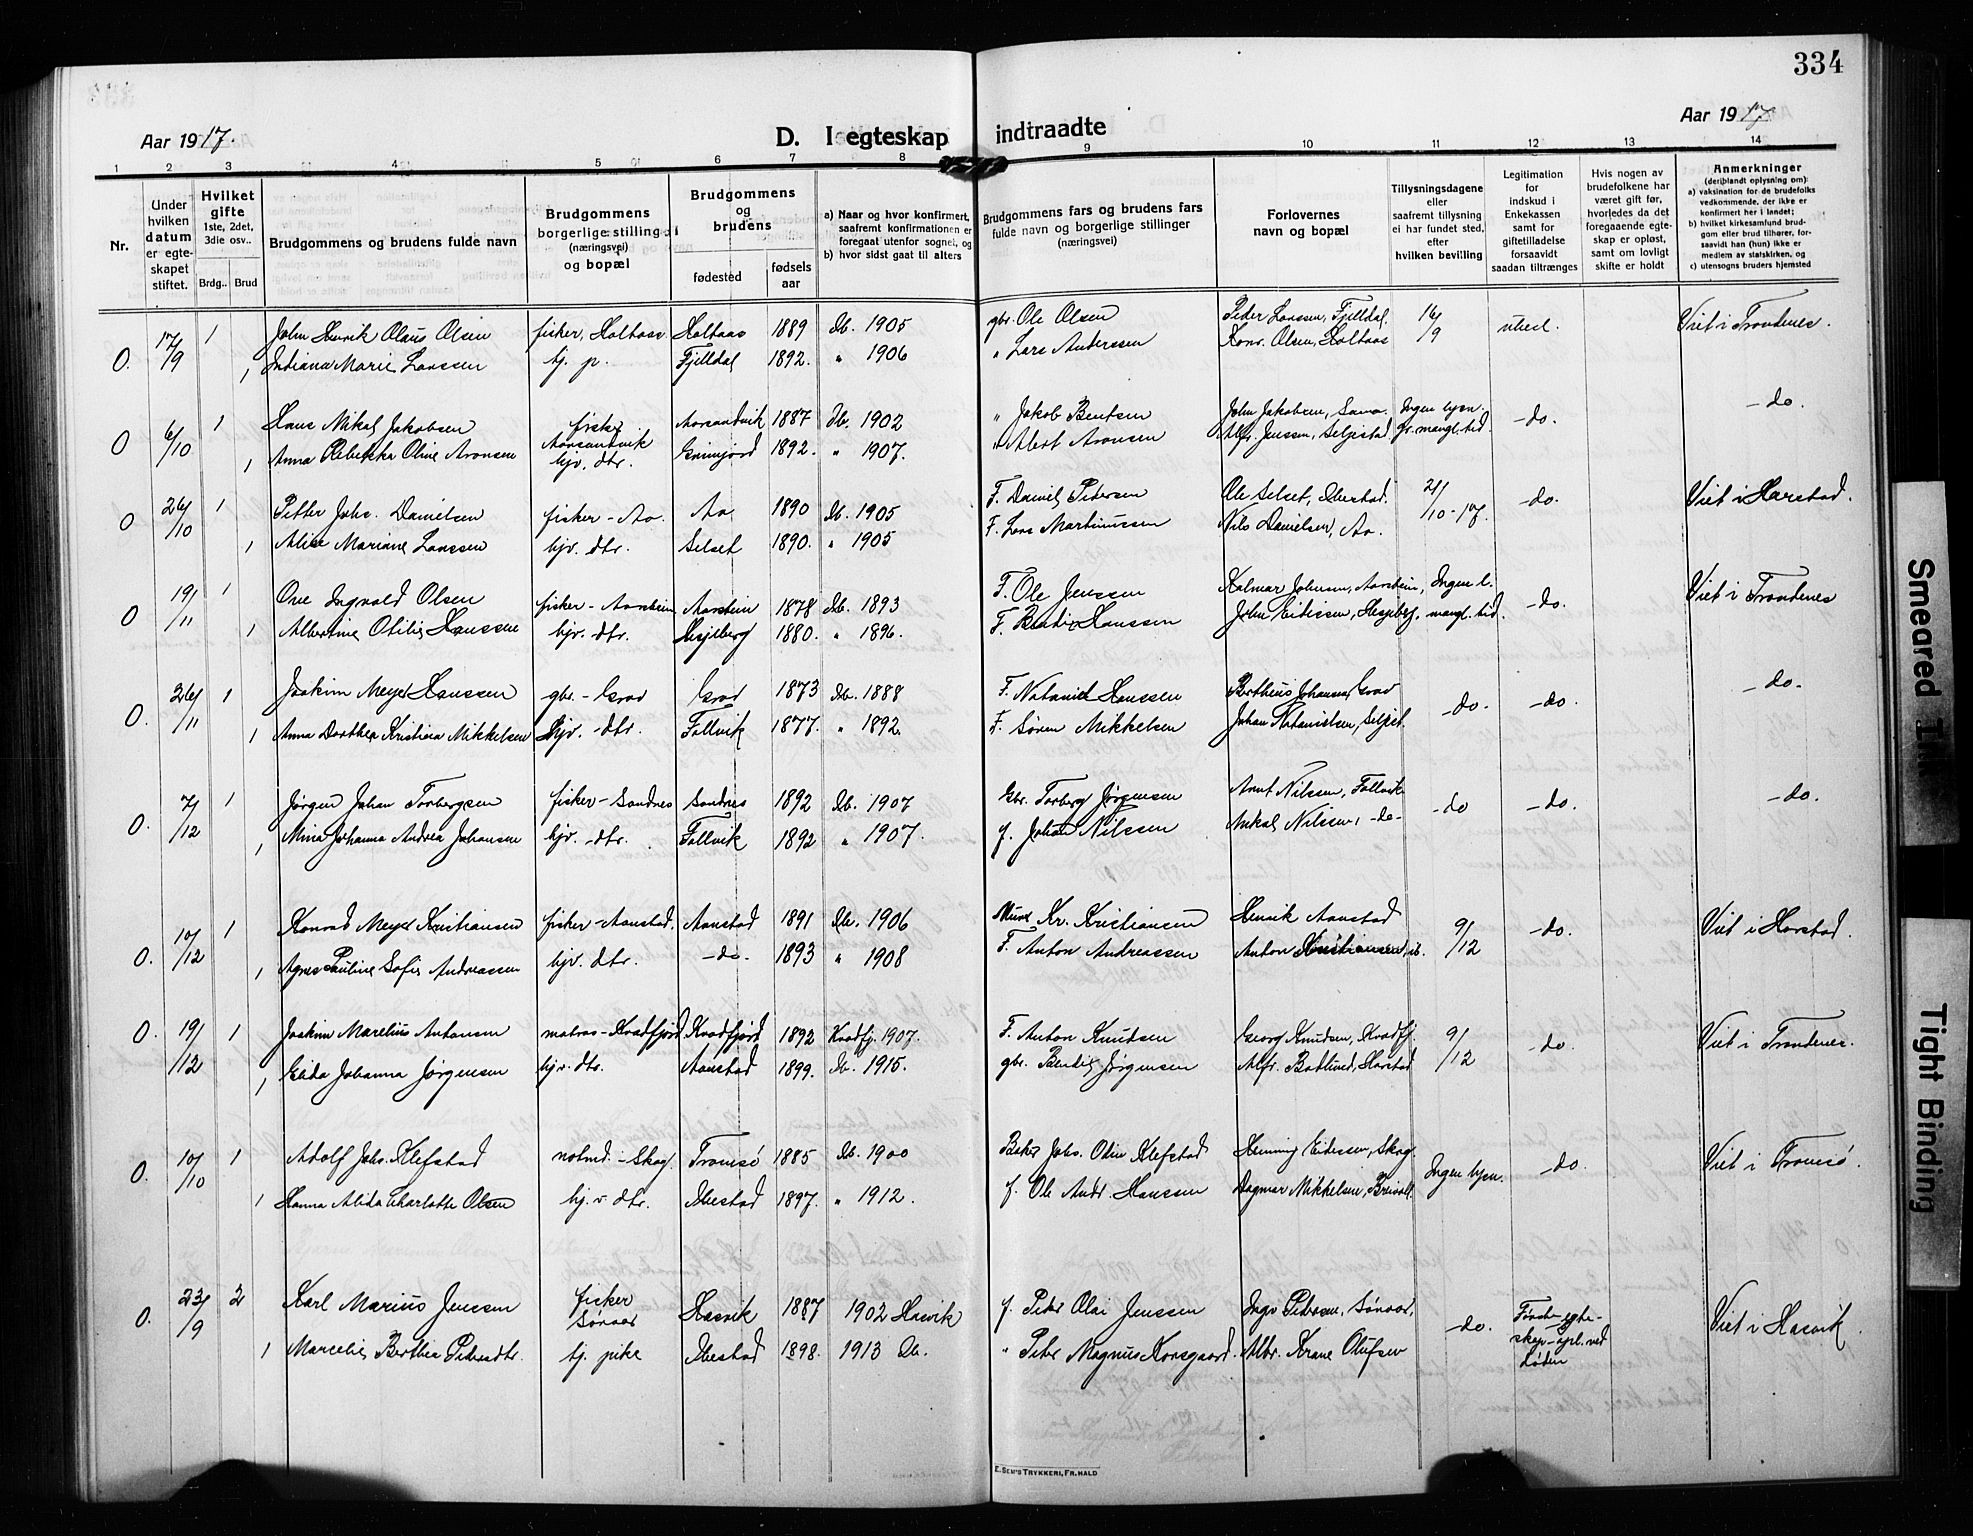 334
Aar 1917.
D. I egteskap indtraadte
Aar 1917
1 2 3 4 5 6 7 8 9 10 11 12 13 14
Nr.
Under hvilken datum er egteskapet stiftet.
Hvilket gifte 1ste, 2det, 3die osv..
Brdg.. Brud
Brudgommens og brudens fulde navn
Brudgommens borgerlige stilling (næringsvei) og bopæl
Brudgommens og brudens
fødested
fødsels aar
a) Naar og hvor konfirmert, saafremt konfirmationen er foregaat utenfor sognet, og
b) hvor sidst gaat til alters
Brudgommens fars og brudens fars fulde navn og borgerlige stillinger (næringsvei)
Forlovernes navn og bopæl
Tillysningsdagene eller saafremt tillysning ei har fundet sted, efter hvilken bevilling
Legitimation for indskud i Enkekassen samt for giftetilladelse forsaavidt saadan tiltrænges
Hvis nogen av brudefolkene har været gift før, hvorledes da det foregaaende egteskap er opløst, samt om lovligt skifte er holdt
Anmerkninger (deriblandt oplysning om):
a) vaksination for de brudefolks vedkommende, der ikke er konfirmert her i landet;
b) hvilket kirkesamfund brudgom eller brud tilhører, forsaavidt han (hun) ikke er medlem av statskirken, og
c) utensogns bruders hjemsted
O. 17/9 1 John Henrik Olaus Olsen fisker, Holtaas Holtaas 1889 Ib. 1905 gbr. Ole Olsen Peder Larssen, Fjelldal 16/9 uhed. Viet i Trondenes.
1 Indiana Marie Larssen hj. p. Fjelldal 1892. " 1906 " Lars Anderssen Konr. Olsen, Holtaas
O 6/10 1 Hans Nikal Jakobsen fisker Aarsandvik Aarsandvik 1887 Ib. 1902 " Jakob Bentsen John Jakobsen, Ingen lysn. -do. -do.
1 Anna Rebekka Oline Aronsen hjv. dtr. Grimjord 1892. " 1907. " Albert Aronsen Alfr. Jenssen, Seljestad gr. mangl. tid.
O 26/10 1 Petter Johs. Danielsen fisker - Aa. Aa 1890 Ib. 1905 F. Daniel Pedersen Ole Selset, Ibestad. 21/10-17. -do. Viet i Harstad.
1 Alise Mariane Larssen hjv. dtr. Selset 1890. " 1905 F. Lars Martinussen Nils Danielsen, Aa.
O 19/11 1 Ove Ingvald Olsen fisker - Aarstein Aarstein 1878 Ib. 1893 F. Ole Jenssen Halmar Johnsen, Aarstein, Ingen l. -do. Viet i Trondenes
1 Albertine Otilie Hanssen hjv. dtr. Hesjeberg 1880. " 1896. F. Benedix Hanssen John Eidessen, Hesjeberg, mangl. tid.
O. 26/11 1 Joakim Meyer Hanssen gbr. - Grov Grov 1873 Ib. 1888 F. Nataniel Hanssen Bertheus Johansen, Grov -do- -do. -do-
1 Anna Dorthea Kristina Mikkelsen hjv. -dtr. Follvik 1877. " 1892. F. Søren Mikkelsen Johan Natanielsen, Seljest.
O. 7/12 1 Jørgen Johan Torbergsen fisker - Sandnes Sandnes 1892 Ib. 1907 Gbr. Torberg Jørgensen Arnt Nilssen, Follvik -do -do. -do.
1 Mina Johanna Andrea Johansen hjv. -dtr. Follvik 1892 " 1907. f. Johan Nilssen Mikal Nilssen, -do-
O. 10/12 1 Konrad Meyer Kristiansen fisker - Aanstad. Aanstad 1891 Ib. 1906 Kr. Kristiansen Henrik Aanstad 9/12 -do. Viet i Harstad.
1 Agnes Pauline Sofie Andreassen hjv. dtr. -do- 1893 " 1908 F. Anton Andreassen Anton Kristiansen, ib.
O. 19/12 1 Joakim Marelius Antonsen matros - Kvædfjord Kvædfjord 1892 Kvædfj. 1907. F. Anton Knutsen Georg Knudsen, Kvædfj. 9/12 -do. Viet i Trondenes.
1 Elida Johanna Jørgensen hjv. dtr. Aanstad 1899. Ib. 1915. gbr. Bendix Jørgensen Alfr. Botlived, Harstad
O. 10/10 1 Adolf Johs. Klefstad - Skog. Tromsø 1885 Ib. 1900 Johs. Odin Klefstad Henning Eidessen, Skog. Ingen lysn. -do. Viet i Tromsø.
1 Hanna Alida Charlotte Olsen hj. v. dtr. Ibestad 1897. " 1912. f. Ole Andr. Hanssen Dagmar Mikkelsen, Breivoll
O. 23/9 2 Karl Marius Jenssen fisker Sørvær Hasvik 1887 1902 Hasvik f. Peder Olai Jenssen Ingv. Pedersen, Sørvær, -do. Første egteskap opl. ved døden Viet i Hasvik.
1 Marcelie Berthea Pedersdtr. hj. pike Ibestad 1898. 1913 Ib. " Peder Magnus Korsgaard. Albr. Krane Olufsen
E. SEM'S TRYKKERI, FR. HALD
Smeared Ink
Tight Binding